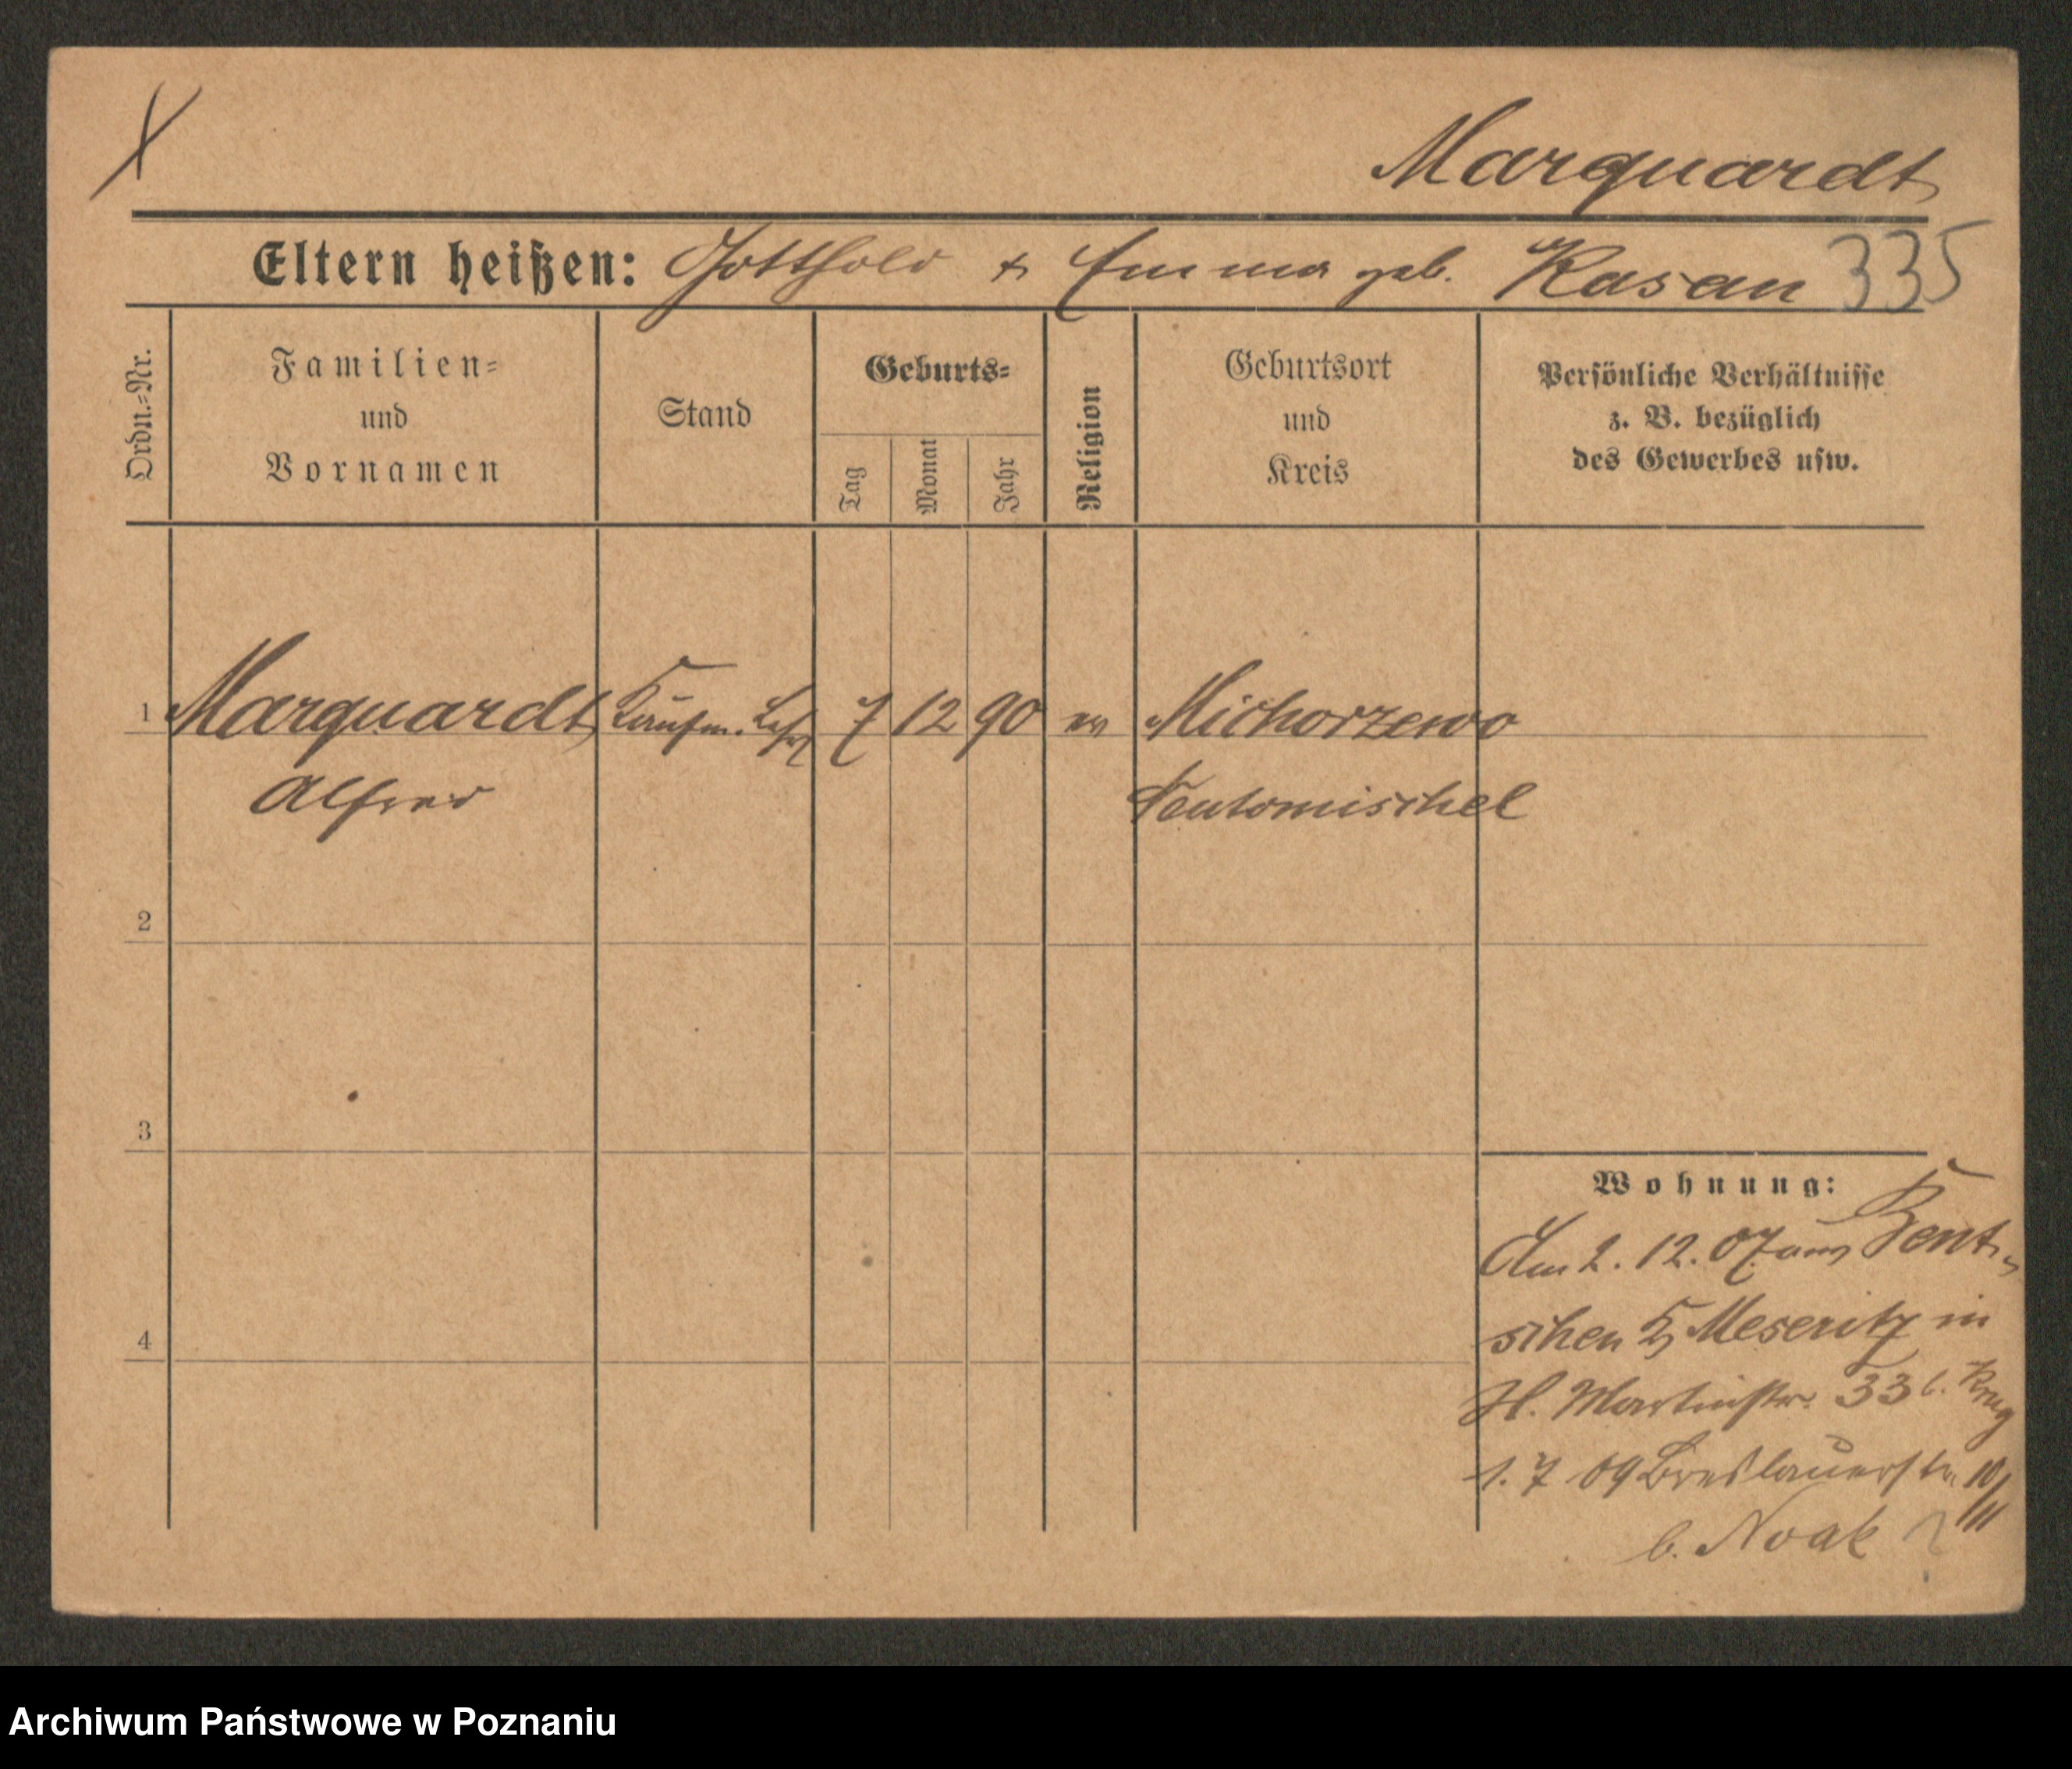 Marquardt
Eltern heißen: Gotthold & Emma geb. Kasan 335
Ordn.=Nr.
Familien=
und
Vornamen
Stand
Geburts=
Tag
Monat
Jahr
Religion
Geburtsort
und
Kreis
Persönliche Verhältnisse
z. B. bezüglich
des Gewerbes usw.
1 Marquardt Kaufm. Lehr 7 12 90 ev Michorzewo
Alfred Neutomischel
2
3
4
Wohnung:
Am 2. 12. 07 aus Bent-
schen Kr Meseritz in
St. Martinstr. 33 b. Krug
1. 7 09 Breslauerstr. 10/11
b. Noak
Archiwum Państwowe w Poznaniu